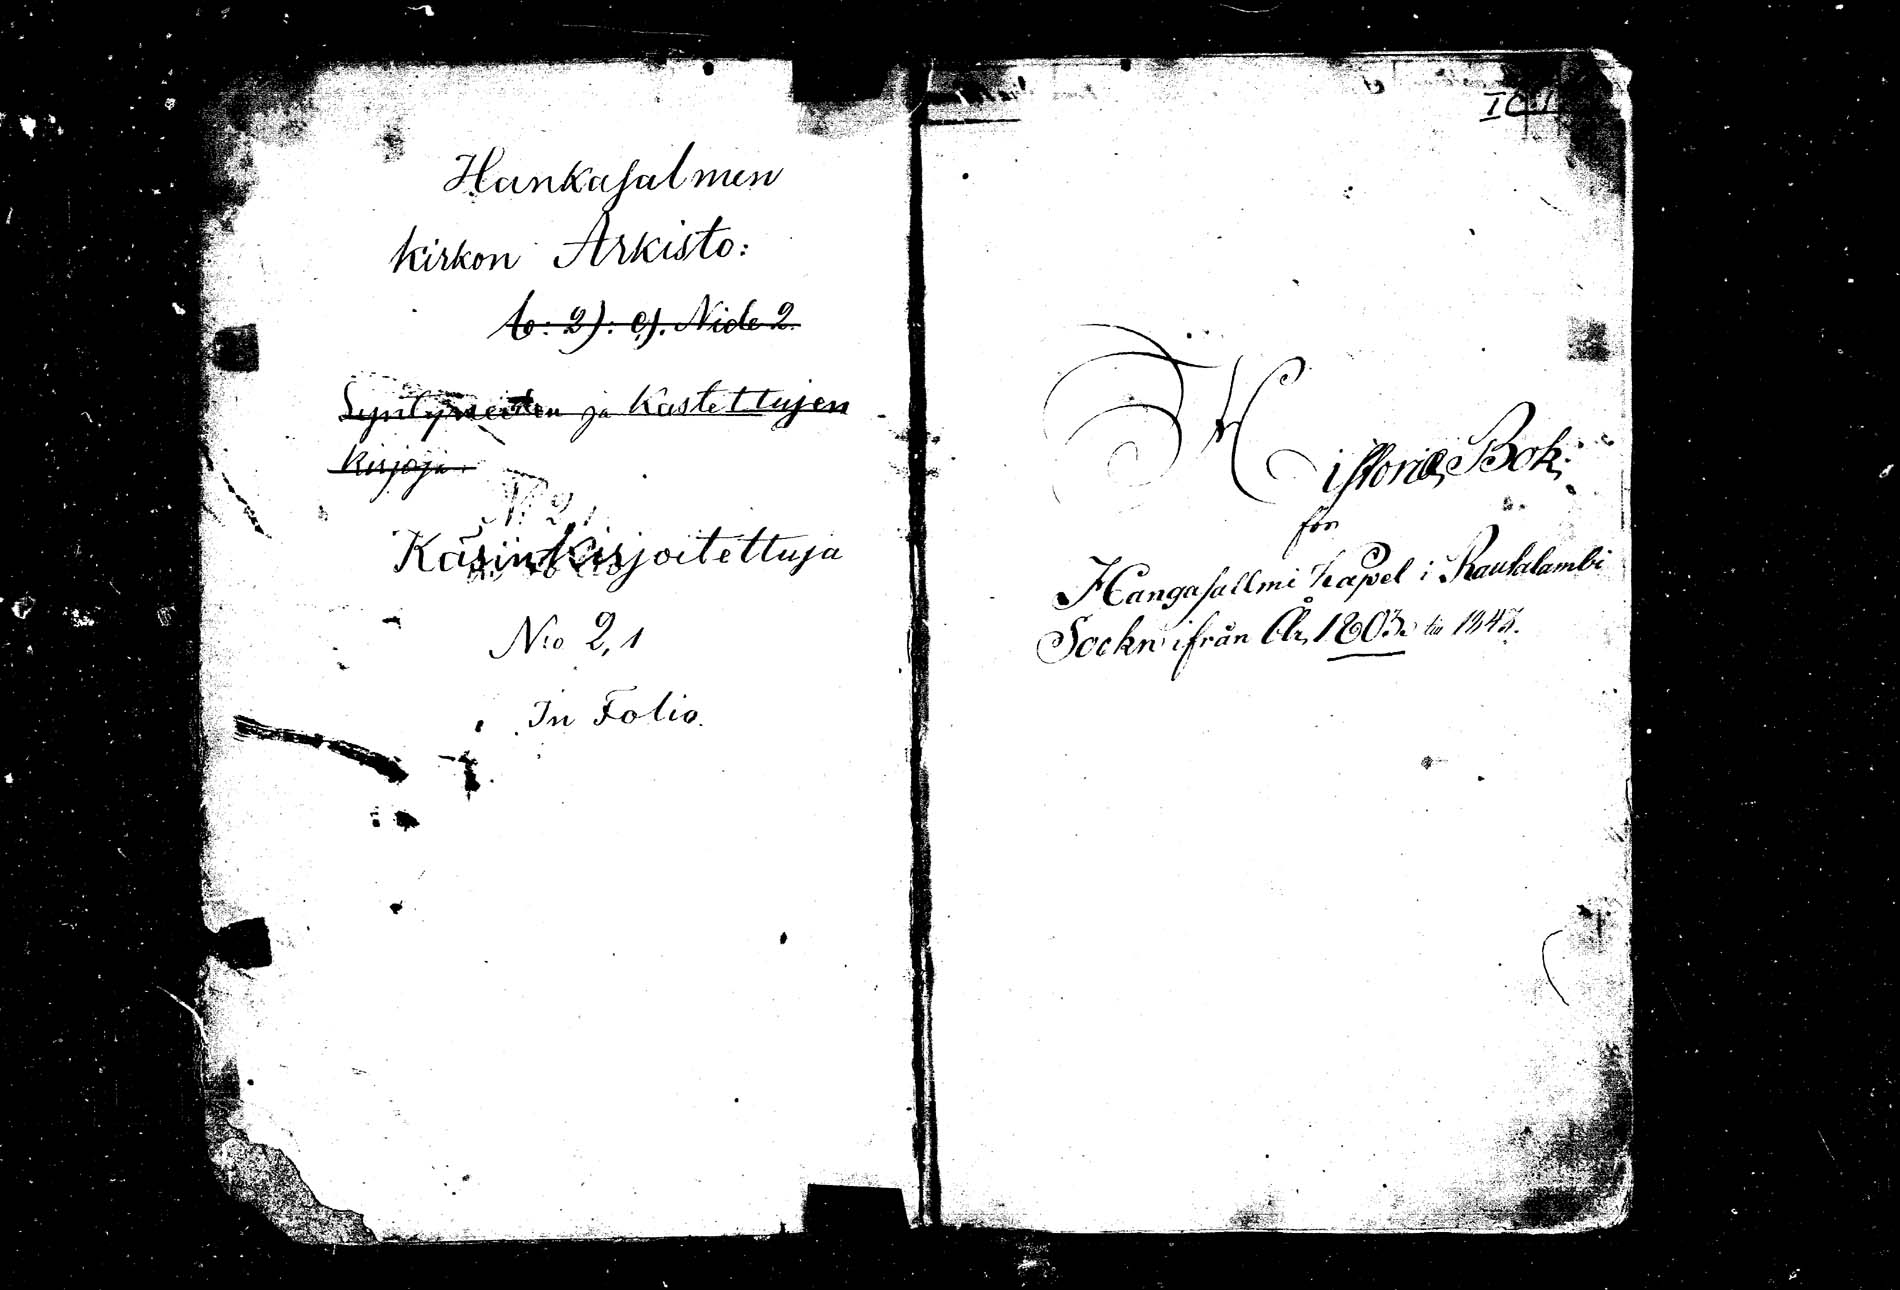 Hankasalmen
kirkon Arkisto:
b: 2): c). Nide 2.
Syntyneiden ja Kastettujen
kirjoja.
N 2,1
Käsinkirjoitettuja
N:o 2,1
In Folio.
I C
Historie Bok
för
Hangasallmi Kapel i Rautalambi
Sockn ifrån År 1803. till 1843.